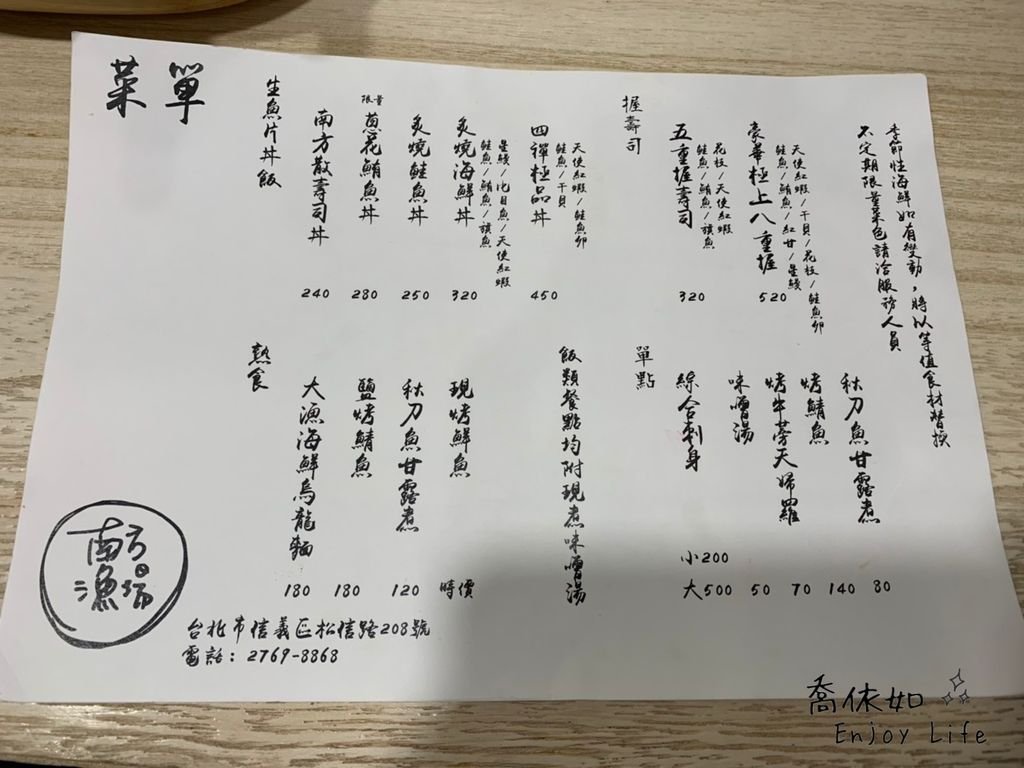 菜單
生魚片丼飯
南方散壽司丼 240
限量 蔥花鮪魚丼 280
炙燒鮭魚丼 250
炙燒海鮮丼 320
鮭魚/鮪魚/旗魚
星鰻/比目魚/天使紅蝦
四禪極品丼 450
鮭魚/干貝
天使紅蝦/鮭魚卵
握壽司
五重握壽司 320
鮭魚/鮪魚/旗魚
花枝/天使紅蝦
豪華極上八重握 520
鮭魚/鮪魚/紅甘/星鰻
天使紅蝦/干貝/花枝/鮭魚卵
不定期限量菜色請洽服務人員
季節性海鮮如有變動，將以等值食材替換
熟食
大漁海鮮烏龍麵 180
鹽烤鯖魚 180
秋刀魚甘露煮 120
現烤鮮魚 時價
飯類餐點均附現煮味噌湯
單點
綜合刺身 小200
大500
味噌湯 50
烤牛蒡天婦羅 70
烤鯖魚 140
秋刀魚甘露煮 80
南方
漁場
台北市信義區松信路208號
電話：2769-8868
喬依如
Enjoy Life